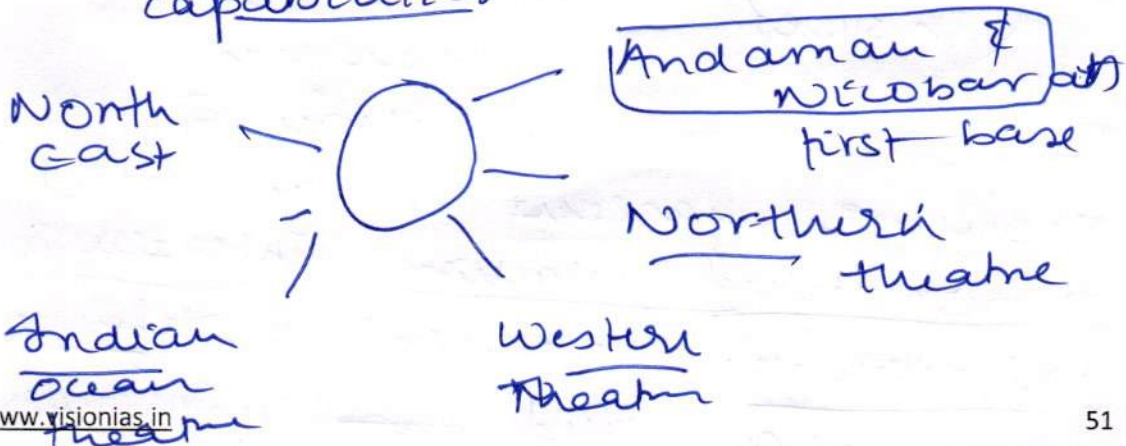 capabilities
Andaman &
Nicobar as
first base
North
East
Northern
theatre
Indian
Ocean
theatre
Western
Theatre
www.visionias.in
51